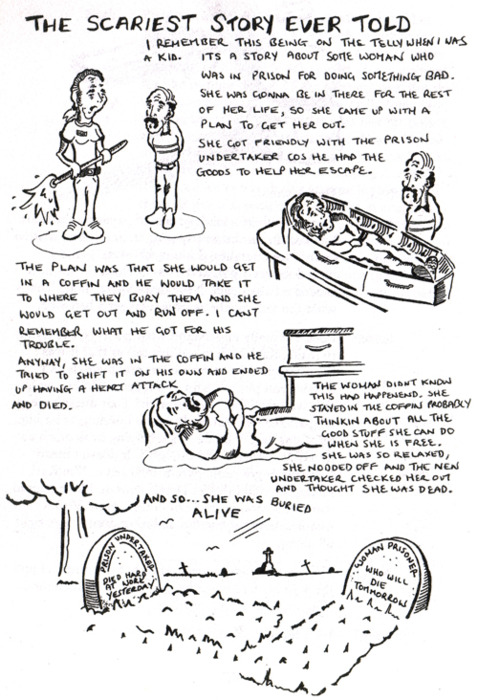 THE SCARIEST STORY EVER TOLD
I REMEMBER THIS BEING ON THE TELLY WHEN I WAS
A KID. ITS A STORY ABOUT SOME WOMAN WHO
WAS IN PRISON FOR DOING SOMETHING BAD.
SHE WAS GONNA BE IN THERE FOR THE REST
OF HER LIFE, SO SHE CAME UP WITH A
PLAN TO GET HER OUT.
SHE GOT FRIENDLY WITH THE PRISON
UNDERTAKER COS HE HAD THE
GOODS TO HELP HER ESCAPE.
THE PLAN WAS THAT SHE WOULD GET
IN A COFFIN AND HE WOULD TAKE IT
TO WHERE THEY BURY THEM AND SHE
WOULD GET OUT AND RUN OFF. I CANT
REMEMBER WHAT HE GOT FOR HIS
TROUBLE.
ANYWAY, SHE WAS IN THE COFFIN AND HE
TRIED TO SHIFT IT ON HIS OWN AND ENDED
UP HAVING A HEART ATTACK
AND DIED.
THE WOMAN DIDNT KNOW
THIS HAD HAPPENEND. SHE
STAYED IN THE COFFIN PROBABLY
THINKIN ABOUT ALL THE
GOOD STUFF SHE CAN DO
WHEN SHE IS FREE.
SHE WAS SO RELAXED,
SHE NODDED OFF AND THE NEW
UNDERTAKER CHECKED HER OUT
AND THOUGHT SHE WAS DEAD.
AND SO... SHE WAS BURIED
ALIVE
PRISON UNDERTAKER
DIED HARD
AT WORK
YESTERDAY
WOMAN PRISONER
WHO WILL
DIE
TOMMORROW